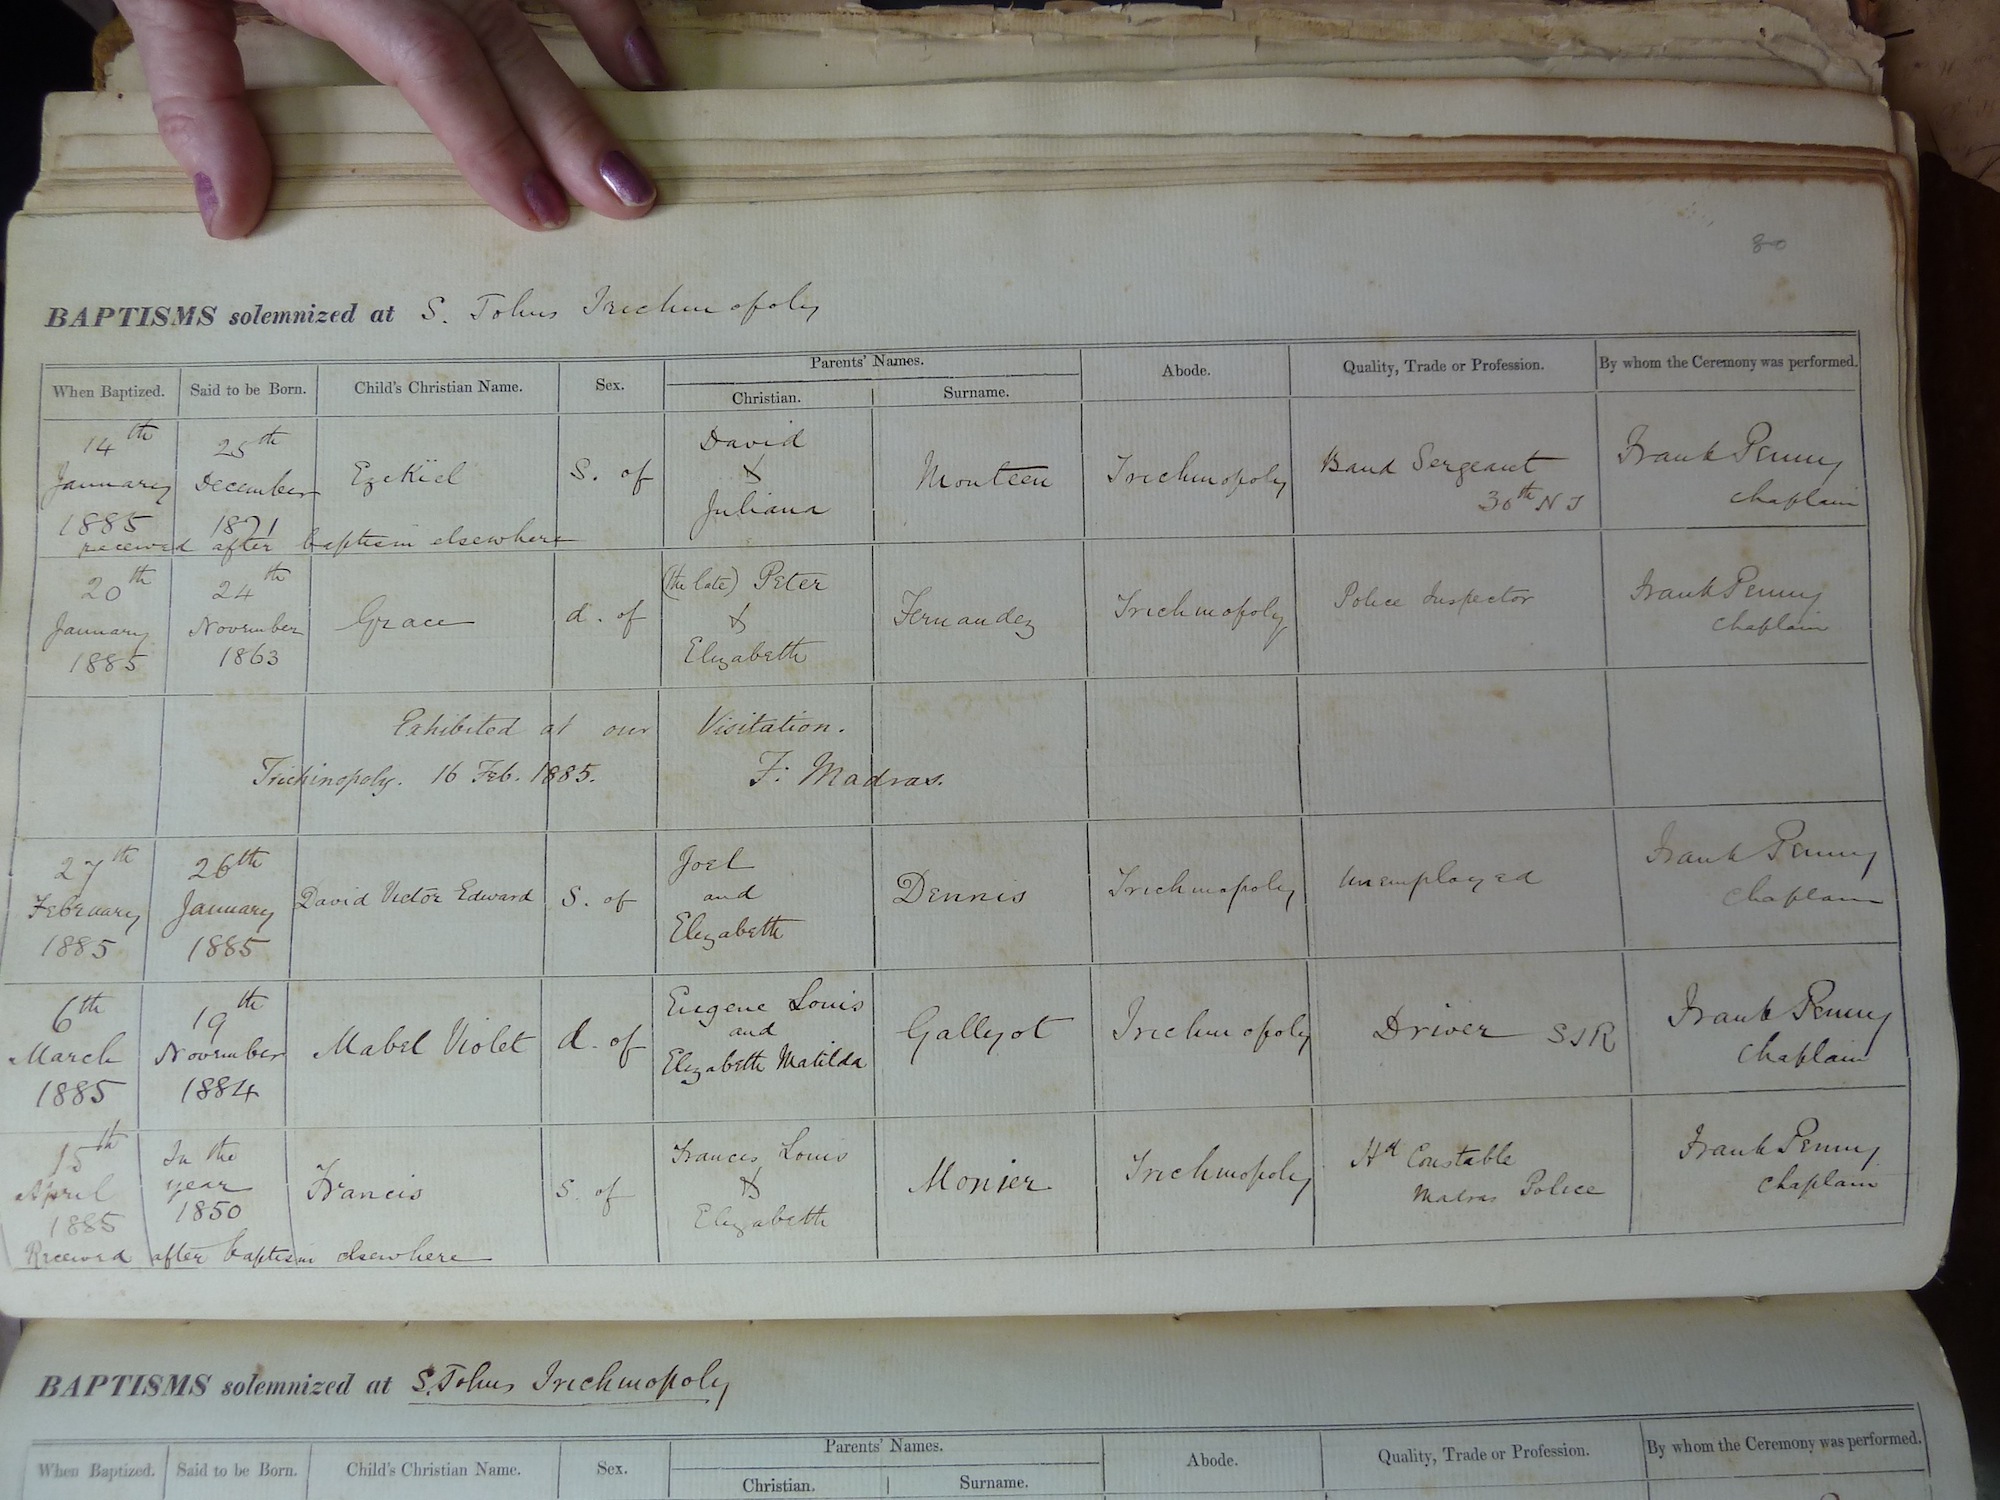 80
BAPTISMS solemnized at S. Johns Trichinopoly
When Baptized. Said to be Born. Child's Christian Name. Sex. Parents' Names. Abode. Quality, Trade or Profession. By whom the Ceremony was performed.
Christian. Surname.
14th January 1885 25th December 1871 Ezekiel S. of David & Juliana Monteen Trichinopoly Band Sergeant 30th N I Frank Penny chaplain
received after baptism elsewhere
20th January 1885 24th November 1863 Grace d. of (the late) Peter & Elizabeth Fernandez Trichinopoly Police Inspector Frank Penny chaplain
Exhibited at our Visitation.
Trichinopoly. 16 Feb. 1885. F. Madras.
27th February 1885 26th January 1885 David Victor Edward S. of Joel and Elizabeth Dennis Trichinopoly Unemployed Frank Penny chaplain
6th March 1885 19th November 1884 Mabel Violet d. of Eugene Louis and Elizabeth Matilda Gallyot Trichinopoly Driver SIR Frank Penny chaplain
15th April 1885 In the year 1850 Francis S. of Francis Louis & Elizabeth Monier Trichinopoly Hd Constable Madras Police Frank Penny chaplain
Received after baptism elsewhere
BAPTISMS solemnized at S. Johns Trichinopoly
When Baptized. Said to be Born. Child's Christian Name. Sex. Parents' Names. Abode. Quality, Trade or Profession. By whom the Ceremony was performed.
Christian. Surname.